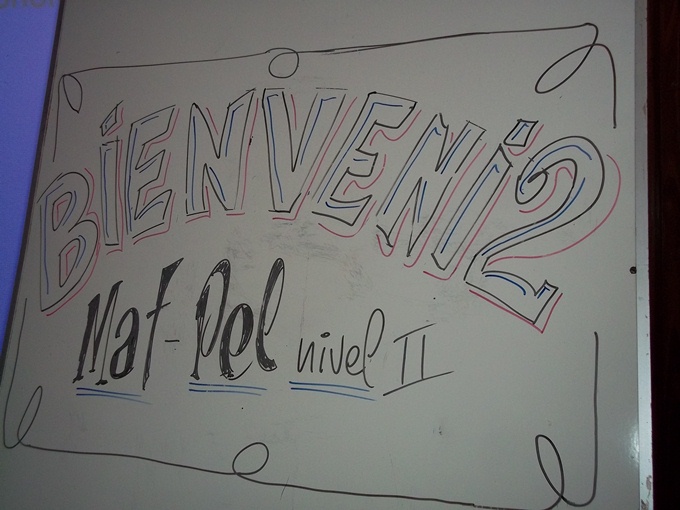 BiENVENi2
Mat-Pel nivel II